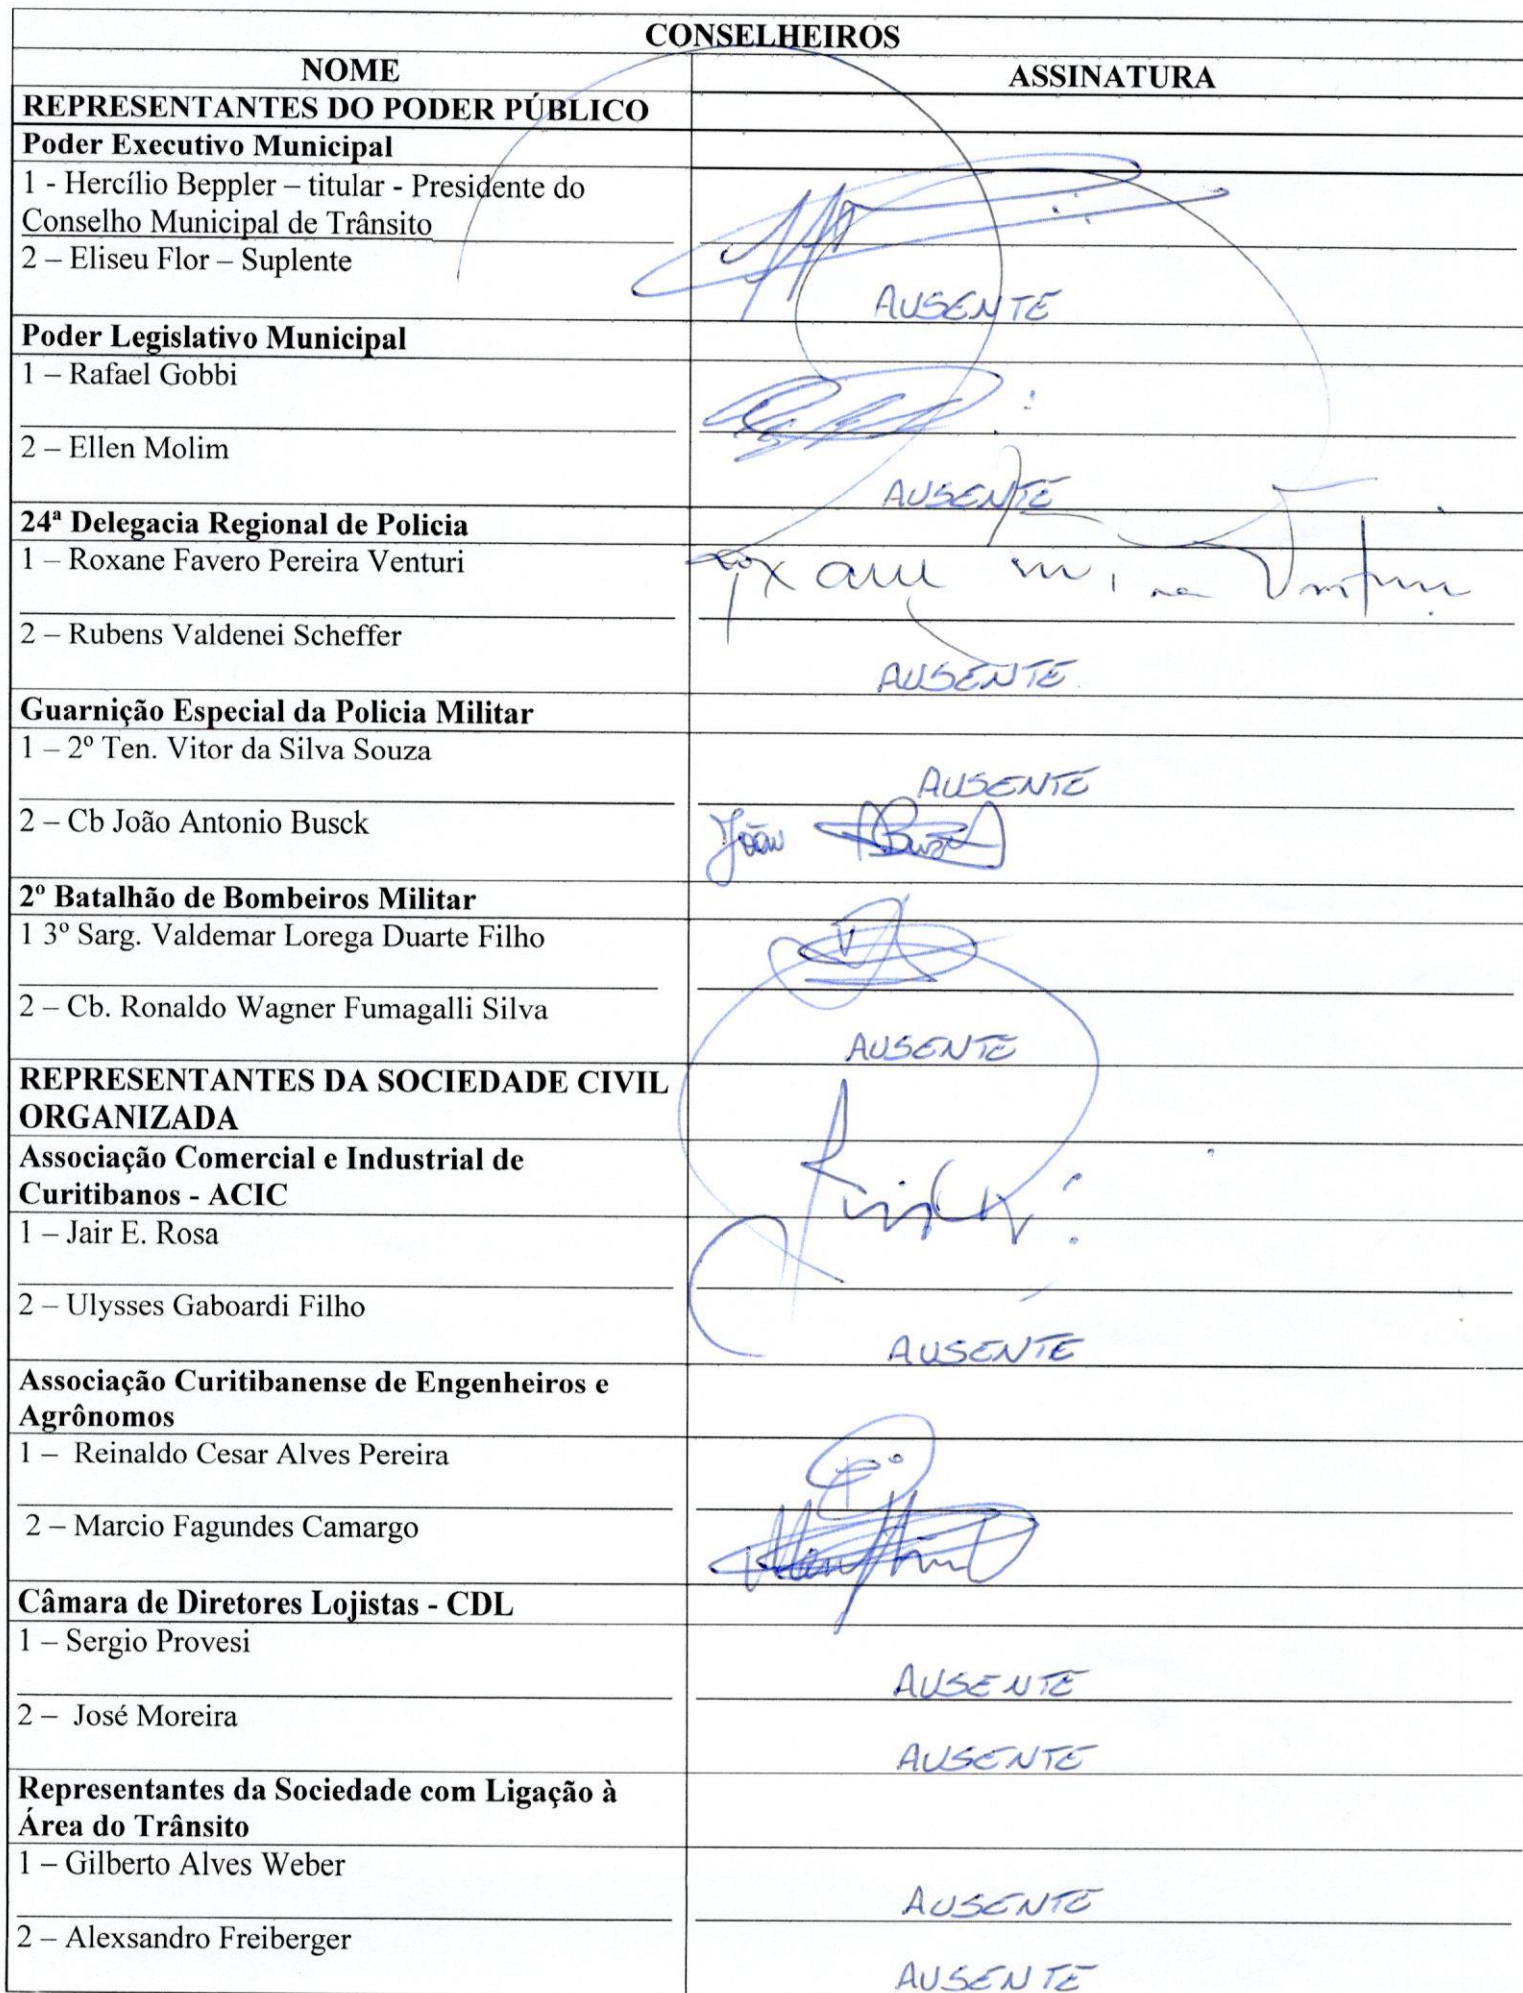 CONSELHEIROS
NOME ASSINATURA
REPRESENTANTES DO PODER PÚBLICO
Poder Executivo Municipal
1 - Hercílio Beppler – titular - Presidente do
Conselho Municipal de Trânsito
2 – Eliseu Flor – Suplente
AUSENTE
Poder Legislativo Municipal
1 – Rafael Gobbi
2 – Ellen Molim
AUSENTE
24ª Delegacia Regional de Policia
1 – Roxane Favero Pereira Venturi
2 – Rubens Valdenei Scheffer
AUSENTE
Guarnição Especial da Policia Militar
1 – 2º Ten. Vitor da Silva Souza
AUSENTE
2 – Cb João Antonio Busck
João
2º Batalhão de Bombeiros Militar
1 3º Sarg. Valdemar Lorega Duarte Filho
2 – Cb. Ronaldo Wagner Fumagalli Silva
AUSENTE
REPRESENTANTES DA SOCIEDADE CIVIL
ORGANIZADA
Associação Comercial e Industrial de
Curitibanos - ACIC
1 – Jair E. Rosa
2 – Ulysses Gaboardi Filho
AUSENTE
Associação Curitibanense de Engenheiros e
Agrônomos
1 – Reinaldo Cesar Alves Pereira
2 – Marcio Fagundes Camargo
Câmara de Diretores Lojistas - CDL
1 – Sergio Provesi
AUSENTE
2 – José Moreira
AUSENTE
Representantes da Sociedade com Ligação à
Área do Trânsito
1 – Gilberto Alves Weber
AUSENTE
2 – Alexsandro Freiberger
AUSENTE